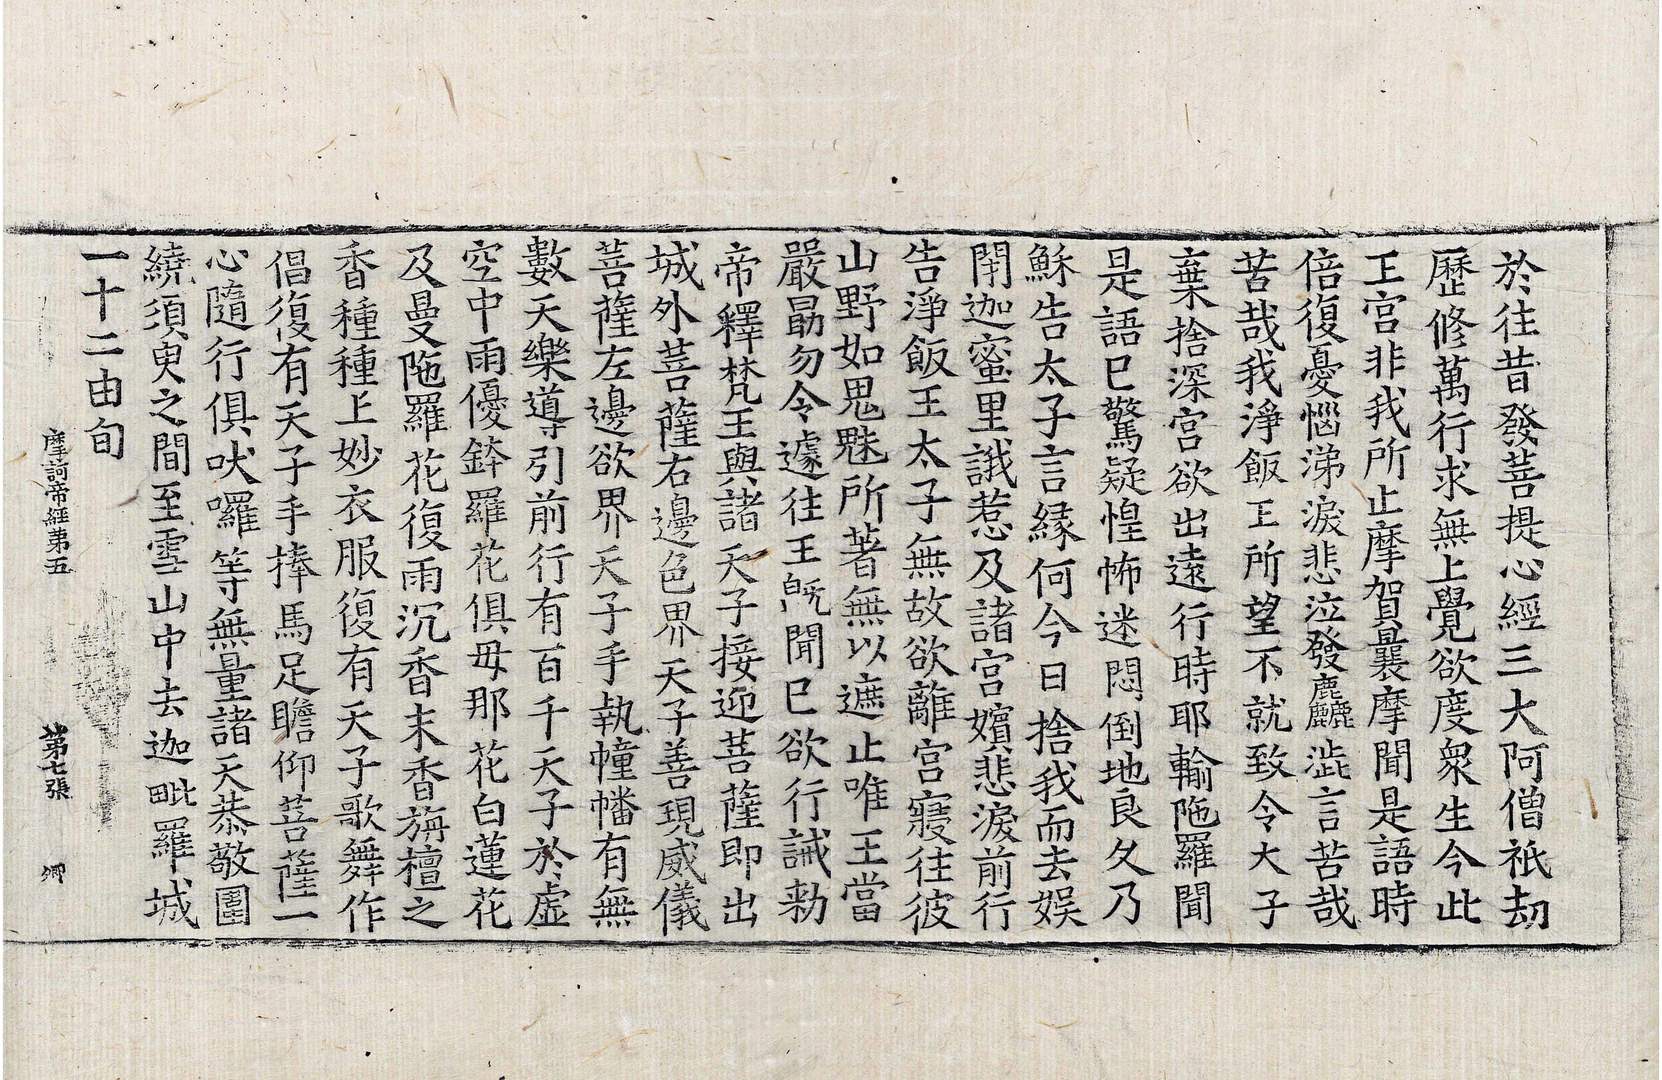 於往昔發菩提心經三大阿僧祇劫
歷修萬行求無上覺欲度衆生今此
王宮非我所止摩賀曩摩聞是語時
倍復憂惱涕淚悲泣發麤澁言苦哉
苦哉我淨飯王所望不就致令太子
棄捨深宮欲出遠行時耶輸陁羅聞
是語已驚疑惶怖迷悶倒地良久乃
穌告太子言緣何今日捨我而去娛
閉迦蜜里誐惹及諸宮嬪悲淚前行
告淨飯王太子無故欲離宮寢往彼
山野如鬼魅所著無以遮止唯王當
嚴勗勿令遽往王旣聞已欲行誡勑
帝釋梵王與諸天子接迎菩薩即出
城外菩薩右邊色界天子善現威儀
菩薩左邊欲界天子手執幢幡有無
數天樂導引前行有百千天子於虛
空中雨優鉢羅花俱毋那花白蓮花
及曼陁羅花復雨沉香末香旃檀之
香種種上妙衣服復有天子歌舞作
倡復有天子手捧馬足瞻仰菩薩一
心隨行俱吠囉等無量諸天恭敬圍
繞須臾之間至雪山中去迦毗羅城
一十二由旬
摩訶帝經第五 第七張 卿